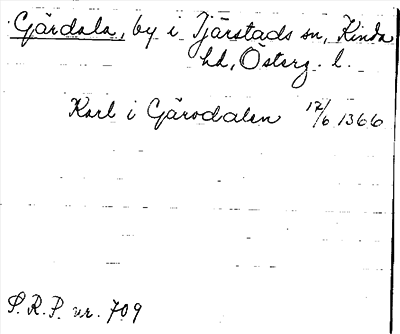 Gärdala, by i Tjärstads sn, Kinda
hd, Österg. l.
Karl i Gärodalen 12/6 1366
S.R.P. nr. 709